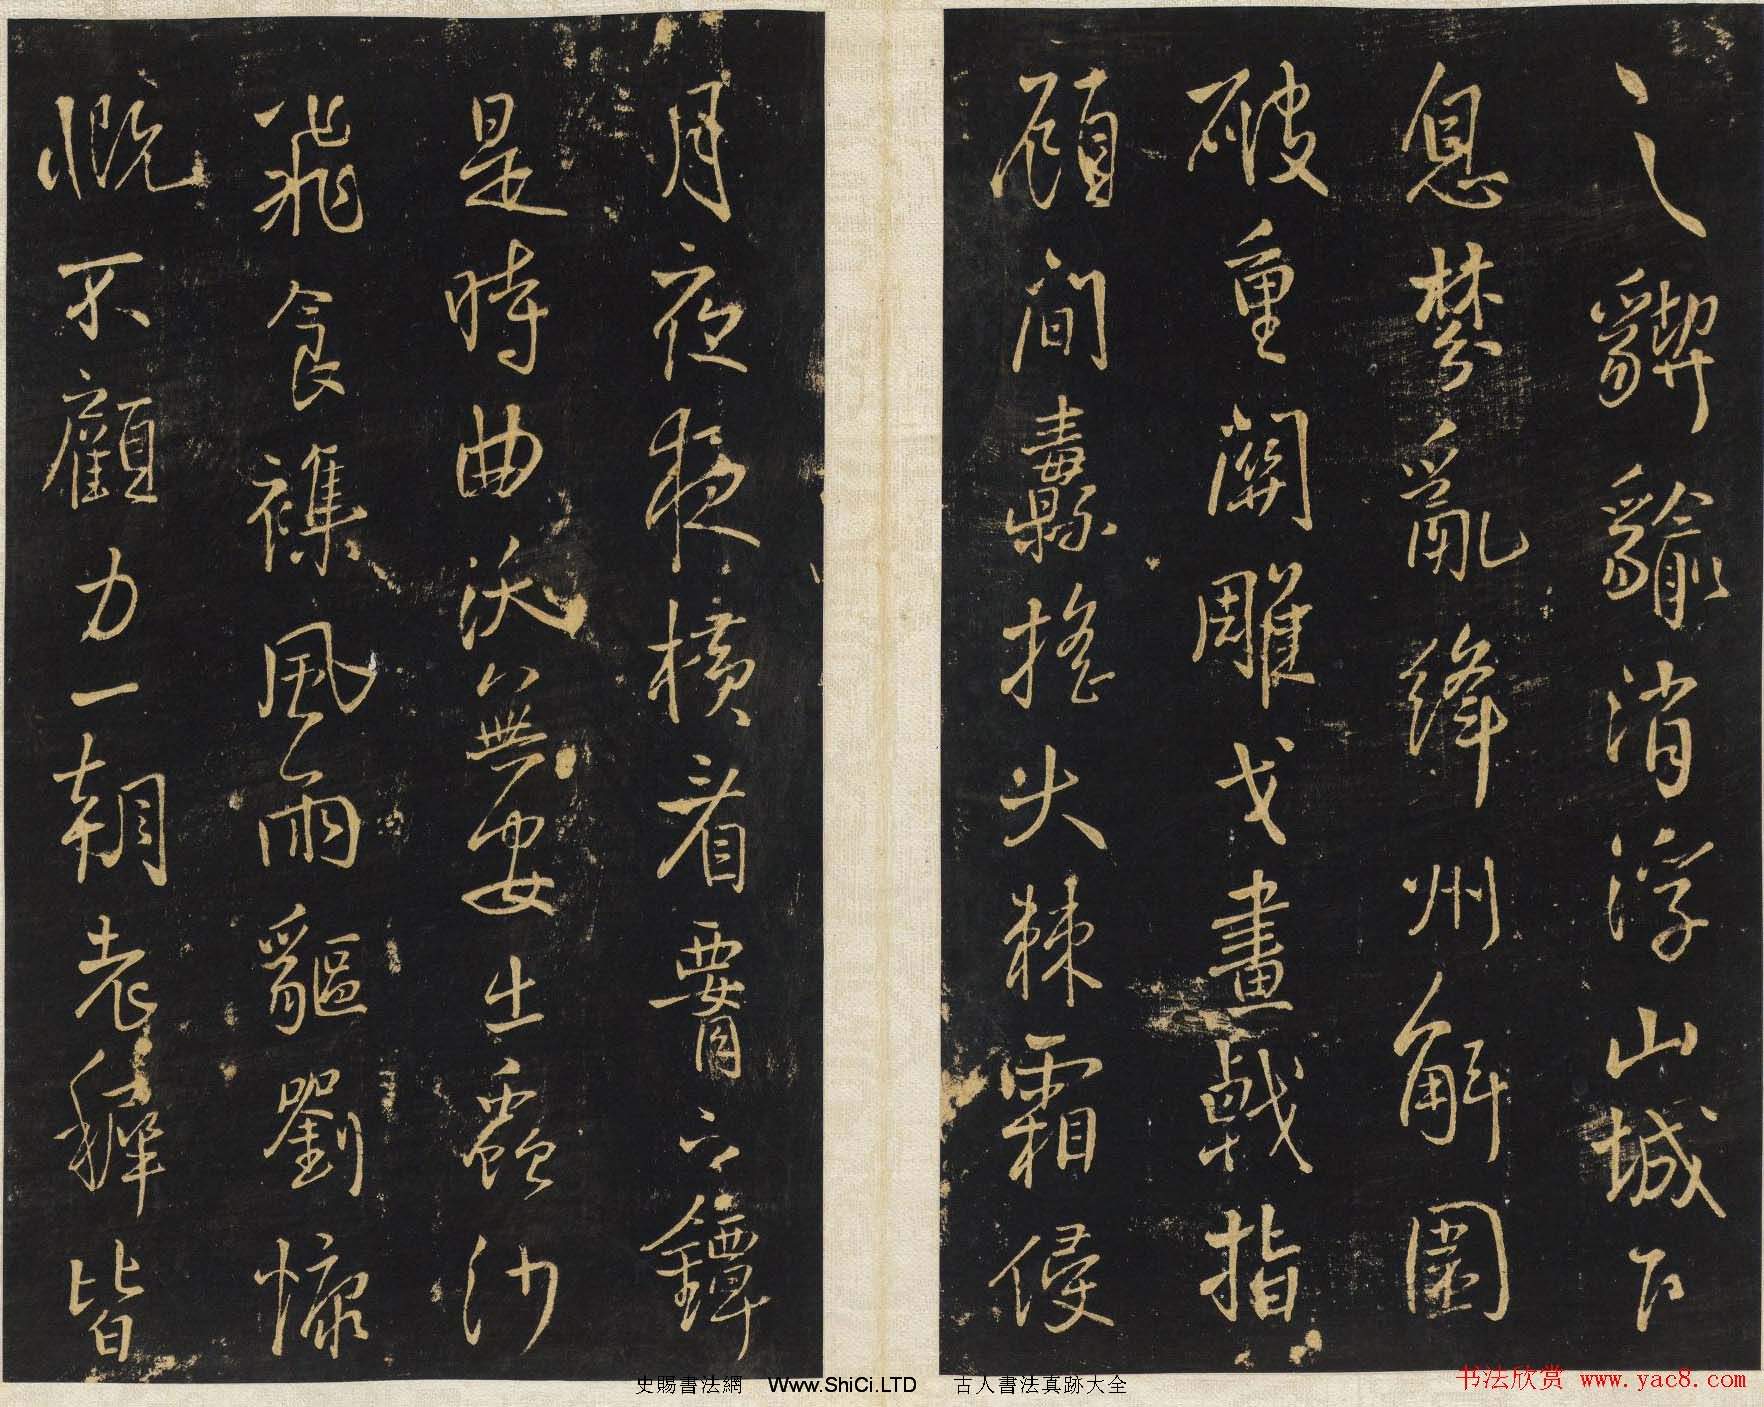 之貏貐消浮山城下
息棼亂絳州解圍
破重關雕戈畫戟指
顧間纛縣搖火棘霜侵
月夜枕橫看要六鐔
是時曲沃無妄生蝨沙
飛食襍風雨驅劉慷
慨不顧力一朝老穉皆
史賜書法網 Www.ShiCi.LTD 古人書法真跡大全
书法欣赏 www.yac8.com